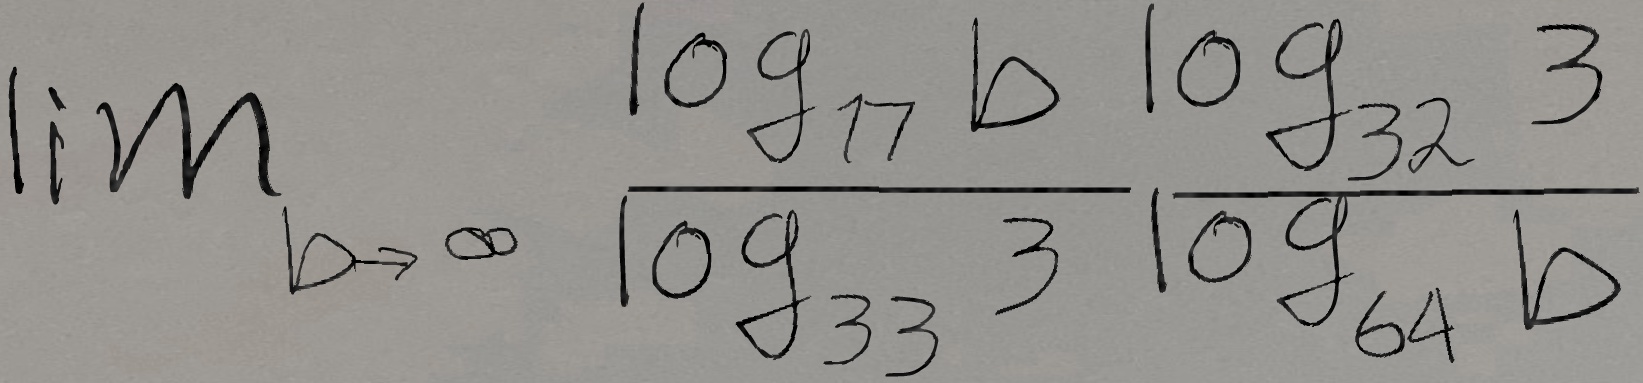 \lim_{b \to \infty} \frac{\log_{17} b}{\log_{33} 3} \frac{\log_{32} 3}{\log_{64} b}